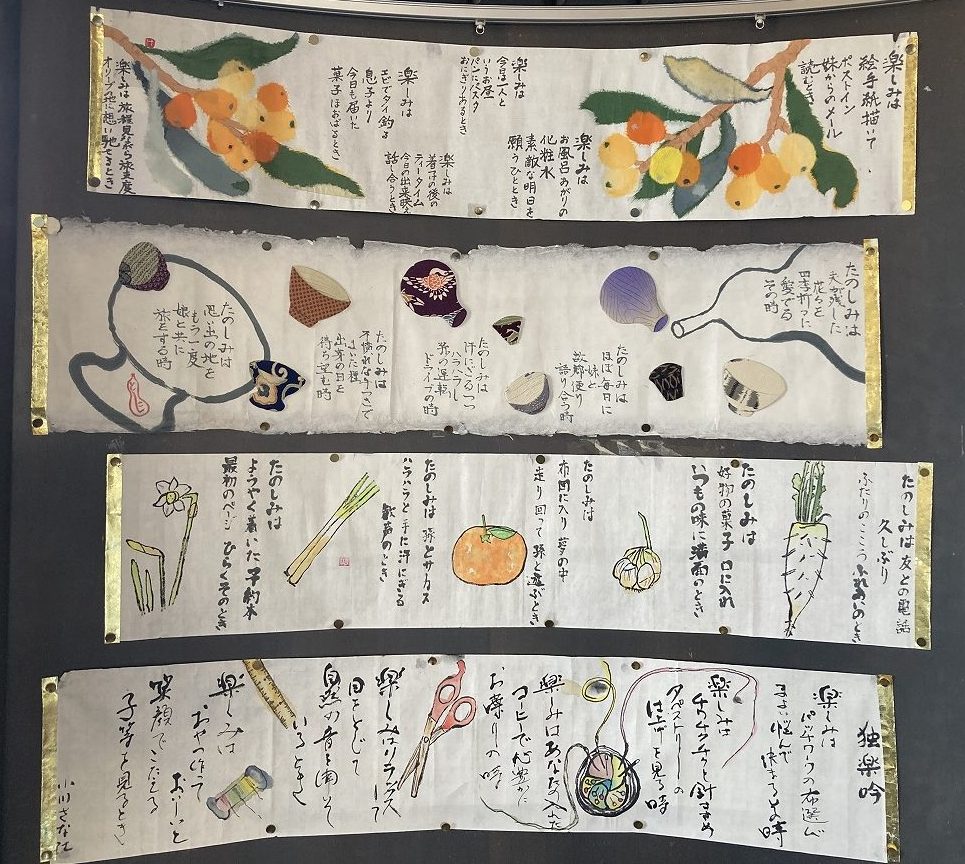 楽しみは
絵手紙描いて
ポストイン
妹からのメール
読むとき
楽しみは
お風呂あがりの
化粧水
素敵な明日を
願うひととき
楽しみは
今日は一人と
いうお昼
パンにパスタ
おにぎりあるとき
楽しみは
着付の後の
ティータイム
今日の出来映え
話し合うとき
楽しみは
エビでタイ釣る
息子より
今日も届いた
菓子ほおばるとき
楽しみは旅程見ながら旅支度
オリーブの地に想い馳せるとき
たのしみは
夫が残した
花々を
四季折々に
愛でる
その時
たのしみは
妹と
ほぼ毎日に
故郷便り
語り合う時
たのしみは
汗にぎるつつ
ハラハラし
孫の運転
ドライブの時
たのしみは
不慣れな手つきで
まいた種
出芽の日を
待ち望む時
たのしみは
思い出の地を
もう一度
娘と共に
旅をする時
たのしみは友との電話
久しぶり
ふたりのこころふれあいのとき
たのしみは
好物の菓子口に入れ
いつもの味に満面のとき
たのしみは
布団に入り夢の中
走り回って孫と遊ぶとき
たのしみは孫とサーカス
ハラハラと手に汗にぎる
歓声のとき
たのしみは
ようやく着いた予約本
最初のページひらくそのとき
独楽吟
楽しみは
パッチワークの布選び
まよい悩んで
決まるその時
楽しみは
チクチクチクと針すすめ
タペストリーの
仕上がり見る時
楽しみはあなたの入れた
コーヒーで心豊かに
お喋りの時
楽しみはリラックスして
目をとじて
自然の音を聞いて
いるときき
楽しみは
おやつ作って
おいしいと
笑顔でこたえる
子等を見るとき